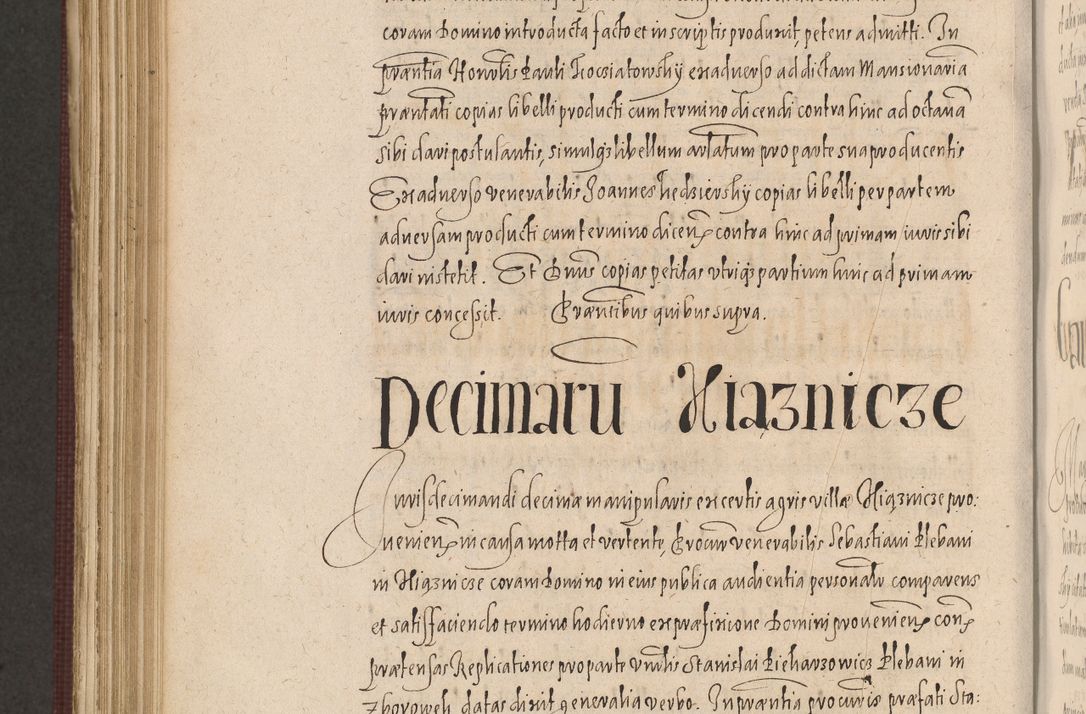 coram Domino introducta facto et inscriptis produxit, petens admitti. In
præntia Honorlis Pauli Kocziatowsky ex adverso ad dictam Mansionaria
præntati copias libelli producti cum termino dicendi contra hinc ad octavā
sibi dari postulantis, simulqz libellum arłatum pro parte sua producentis
Ex adverso venerabilis Joannes hedziersky copias libelli per partem
adversam producti cum termino dicen. contra hinc ad primam iuris sibi
dari institit. Et Dnus copias petitas vtriqz partium hinc ad primam
iuris concessit. Præntibus quibus supra.
Decimarū Xiąznicze
Iuris decimandi decimæ manipularis ex certis agris villæ Xiąznicze pro:
uenien. in causa motta et vertente, Procūr venerabilis Sebastiani Plebani
in Xiąznicze coram Domino in eius publica audientia personalr comparens
et satisfaciendo termino hodierno ex præfixione Domini provenien. con.
prætensas Replicationes pro parte vnrlis Stanislai Piekarzowicz Plebani in
Zborowek datas dixit generalia verbo. In præntia procuris præfati Sta: